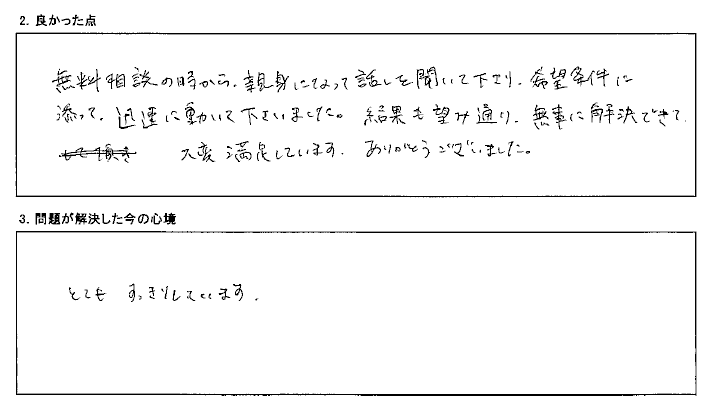 2. 良かった点
無料相談の時から、親身になって話しを聞いて下さり、希望条件に
添って、迅速に動いて下さいました。結果も望み通り、無事に解決できて
大変満足しています。ありがとうございました。
3. 問題が解決した今の心境
とても すっきりしています。